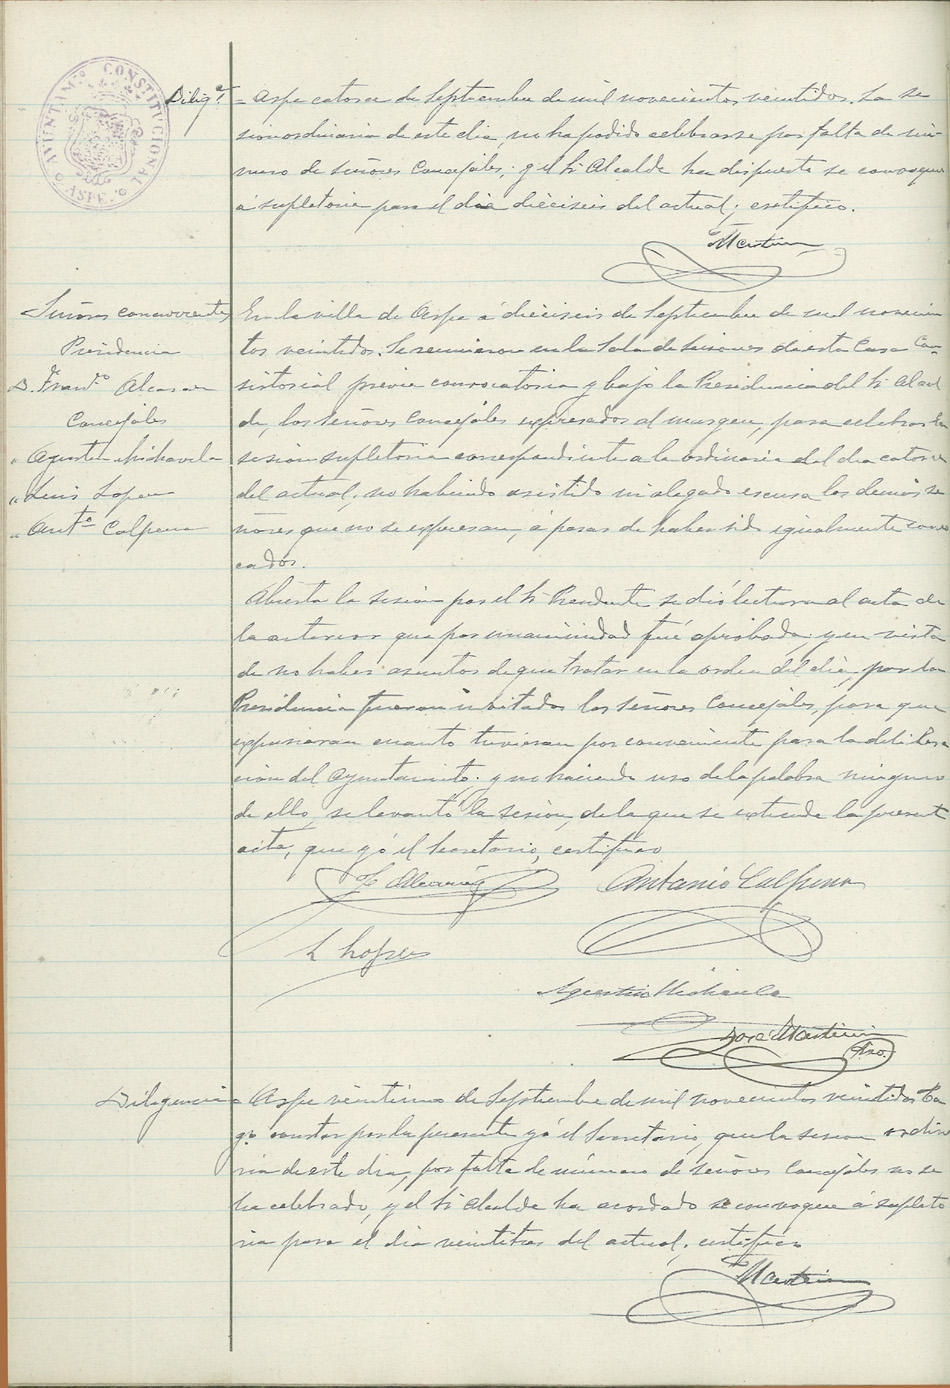 AYUNTAM.º CONSTITUCIONAL
ASPE.
Dilig.ª = Aspe catorce de Septiembre de mil novecientos veintidos. La se
sion ordinaria de este dia, no ha podido celebrarse por falta de nú-
mero de señores Concejales; y el Sr Alcalde ha dispuesto se convoque
á supletoria para el dia dieciseis del actual; certifico.
Martinez
Señores concurrentes
Presidencia
D. Fran.co Alcaraz
Concejales
" Agustin Michavila
" Luis Lopez
" Ant.º Calpena
En la villa de Aspe á dieciseis de Septiembre de mil novecien
tos veintidos. Se reunieron en la Sala de Sesiones de esta Casa Con-
sistorial previa convocatoria y bajo la Presidencia del Sr Alcal
de, los señores Concejales expresados al margen, para celebrar la
sesion supletoria correspondiente a la ordinaria del dia catorce
del actual; no habiendo asistido ni alegado escusa los demás se
ñores que no se expresan, á pesar de haber sido igualmente convo
cados.
Abierta la sesion por el Sr Presidente se dió lectura al acta de
la anterior que por unanimidad fué aprobada: y en vista
de no haber asuntos de que tratar en la orden del dia, por la
Presidencia fueron invitados los señores Concejales, para que
expusieran cuanto tuvieran por conveniente para la delibera
cion del Ayuntamiento: y no haciendo uso de la palabra ninguno
de ello, se levantó la sesion, de la que se extiende la presente
acta, que yó el Secretario, certifico
F. Alcaraz
Antonio Calpena
L Lopez
Agustin Michavila
José Martinez
Srio.
Diligencia = Aspe veintiuno de Septiembre de mil novecientos veintidos. Ha
go constar por la presente yó el Secretario, que la sesion ordina
ria de este dia, por falta de número de señores Concejales no se
ha celebrado, y el Sr Alcalde ha acordado se convoque á supleto
ria para el dia veintitres del actual; certifico
Martinez